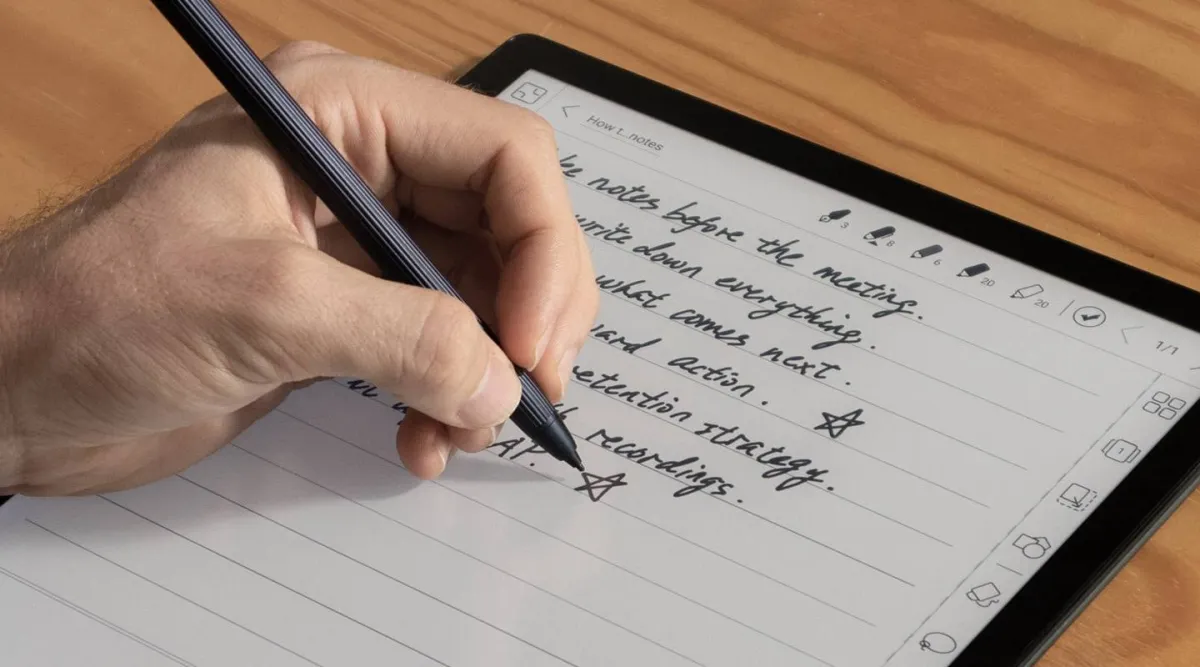 How t...notes
3 8 6 20 20 1/1
notes before the meeting.
write down everything.
what comes next.
action.
retention strategy.
recordings.
AP.